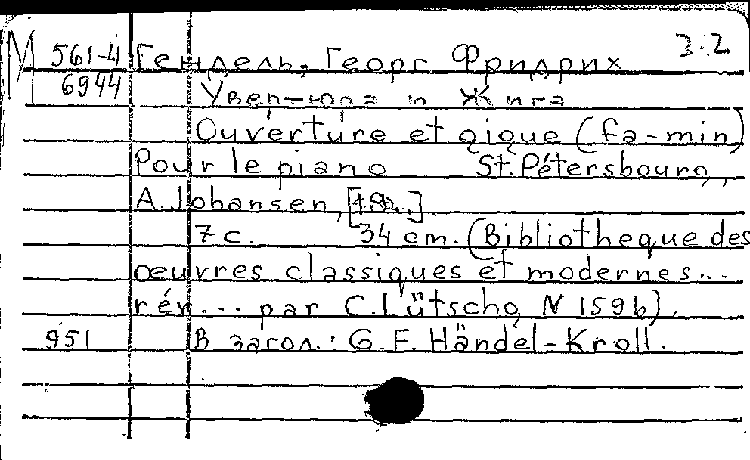 М 561-4 Гендель, Георг Фридрих 3.2
6944 Увертюра и Жига
Ouverture et gigue (fa-min)
Pour le piano St. Pétersbourg,
A. Johansen,
7 с. 34 cm. (Bibliotheque des
œuvres classiques et modernes...
rév... par C. Lütschg N 159b).
951 В загол.: G. F. Händel-Kroll.